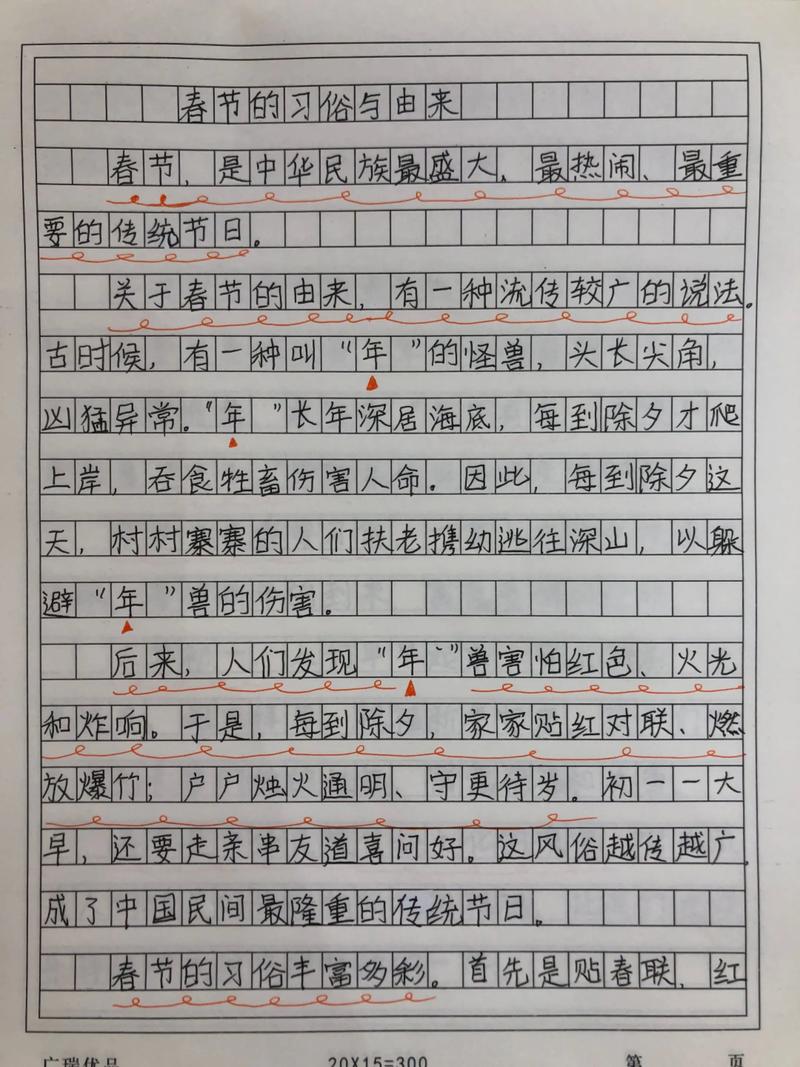 春节的习俗与由来
春节，是中华民族最盛大、最热闹、最重
要的传统节日。
关于春节的由来，有一种流传较广的说法。
古时候，有一种叫“年”的怪兽，头长尖角，
凶猛异常。“年”长年深居海底，每到除夕才爬
上岸，吞食牲畜伤害人命。因此，每到除夕这
天，村村寨寨的人们扶老携幼逃往深山，以躲
避“年”兽的伤害。
后来，人们发现“年”兽害怕红色、火光
和炸响。于是，每到除夕，家家贴红对联、燃
放爆竹；户户烛火通明、守更待岁。初一一大
早，还要走亲串友道喜问好。这风俗越传越广，
成了中国民间最隆重的传统节日。
春节的习俗丰富多彩。首先是贴春联，红
广瑞优品 20X15=300 第 页